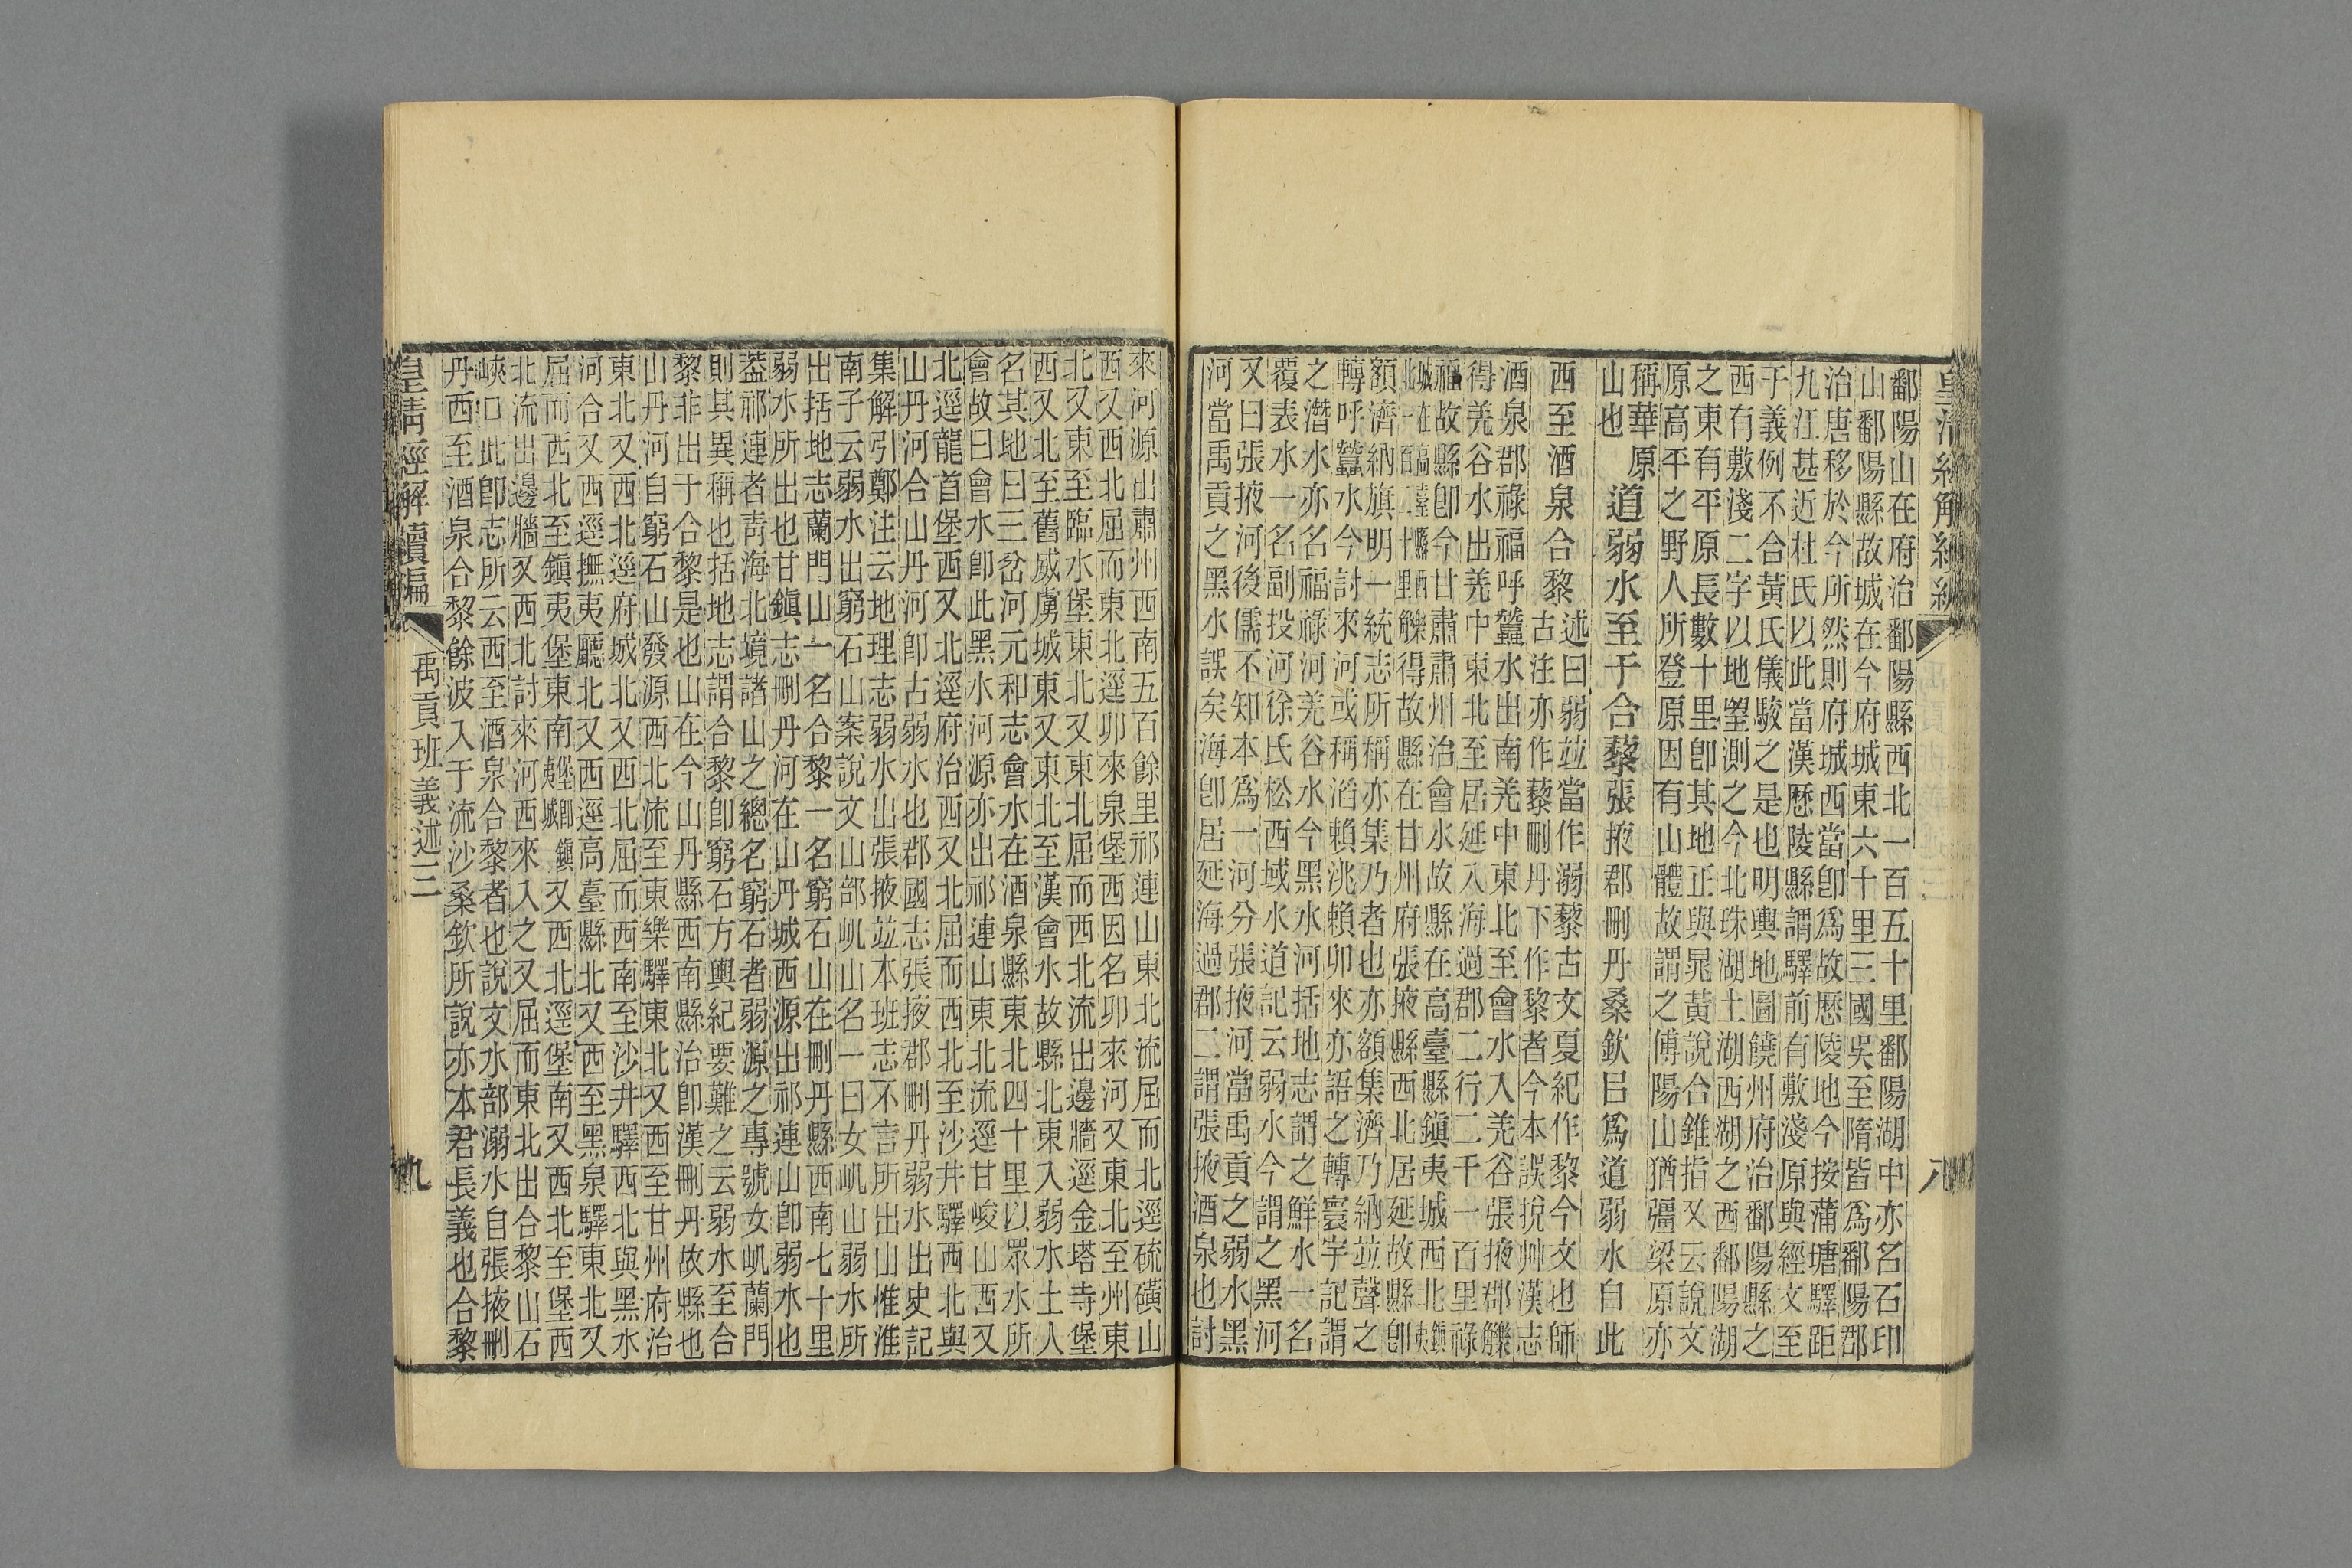 鄱陽山在府治鄱陽縣西北一百五十里鄱陽湖中亦名石印
山鄱陽縣故城在今府城東六十里三國吳至隋皆爲鄱陽郡
治唐移於今所然則府城西當卽爲故歷陵地今按蒲塘驛距
九江甚近杜氏以此當漢歷陵縣謂驛前有敷淺原與經文至
于義例不合黃氏儀駮之是也明輿地圖饒州府治鄱陽縣之
西有敷淺二字以地朢測之今北珠湖土湖西湖之西鄱陽湖
之東有平原長數十里卽其地正與晁黃說合錐指又云說文
原高平之野人所登原因有山體故謂之傅陽山猶彊梁原亦
稱華原
山也
道弱水至于合藜張掖郡刪丹桑欽㠯爲道弱水自此
西至酒泉合黎
述曰弱竝當作溺藜古文夏紀作黎今文也師
古注亦作藜刪丹下作黎者今本誤捝艸漢志
酒泉郡祿福呼蠶水出南羌中東北至會水入羌谷張掖郡觻
得羌谷水出羌中東北至居延入海過郡二行二千一百里祿
福故縣卽今甘肅肅州治會水故縣在高臺縣鎭夷城西北鎭夷
城在高臺縣西北一百二十里觻得故縣在甘州府張掖縣西北居延故縣卽
額濟納旗明一統志所稱亦集乃者也亦額集濟乃納竝聲之
轉呼蠶水今討來河或稱滔賴洮賴卯來亦語之轉寰宇記謂
之潛水亦名福祿河羌谷水今黑水河括地志謂之鮮水一名
覆表水一名副投河徐氏松西域水道記云弱水今謂之黑河
又曰張掖河後儒不知本爲一河分張掖河當禹貢之弱水黑
河當禹貢之黑水誤矣海卽居延海過郡二謂張掖酒泉也討
來河源出肅州西南五百餘里祁連山東北流屈而北逕硫磺山
西又西北屈而東北逕卯來泉堡西因名卯來河又東北至州東
北又東至臨水堡東北又東北屈而西北流出邊牆逕金塔寺堡
西又北至舊威虜城東又東北至漢會水故縣北東入弱水土人
名其地曰三岔河元和志會水在酒泉縣東北四十里以眾水所
會故曰會水卽此黑水河源亦出祁連山東北流逕甘峻山西又
北逕龍首堡西又北逕府治西又北屈而西北至沙井驛西北與
山丹河合山丹河卽古弱水也郡國志張掖郡刪丹弱水出史記
集解引鄭注云地理志弱水出張掖竝本班志不言所出山惟淮
南子云弱水出窮石山案說文山部屼山名一曰女屼山弱水所
出括地志蘭門山一名合黎一名窮石山在刪丹縣西南七十里
弱水所出也甘鎭志刪丹河在山丹城西源出祁連山卽弱水也
蓋祁連者靑海北境諸山之總名窮石者弱源之專號女屼蘭門
則其異稱也括地志謂合黎卽窮石方輿紀要難之云弱水至合
黎非出于合黎是也山在今山丹縣西南縣治卽漢刪丹故縣也
山丹河自窮石山發源西北流至東樂驛東北又西至甘州府治
東北又西北逕府城北又西北屈而西南至沙井驛西北與黑水
河合又西逕撫夷廳北又西逕高臺縣北又西至黑泉驛東北又
屈而西北至鎭夷堡東南堡卽鎭夷城又西北逕堡南又西北至堡西
北流出邊牆又西北討來河西來入之又屈而東北出合黎山石
峽口此卽志所云西至酒泉合黎者也說文水部溺水自張掖刪
丹西至酒泉合黎餘波入于流沙桑欽所說亦本君長義也合黎
皇淸經解續編
禹貢班義述三
九
八